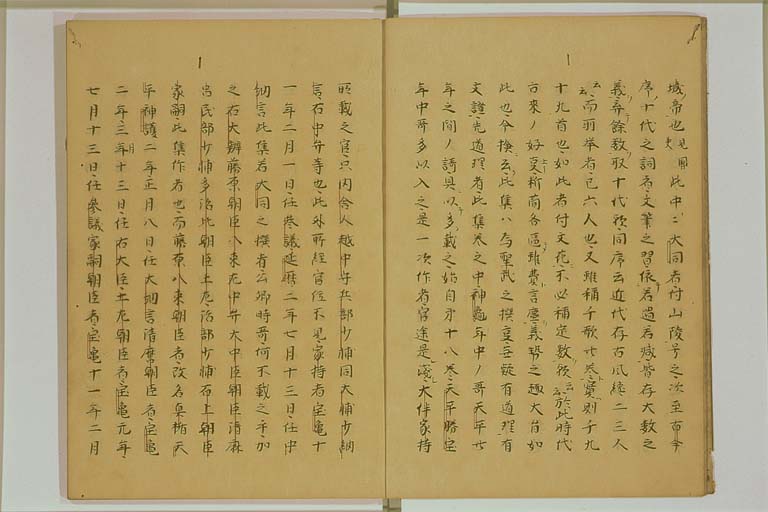 城帝也見国史此中ニ大同者付山陵号之次至百年
序十代之詞者文筆之習依若過若減皆存大数之
義弃餘数取十代歟同序云近代存古風纔二三人
云々而羽挙者已六人也又雖稱千歌廿巻実則千九
十九首也如此者付文花不必稱定数歟云々於此時代
古來ノ好事粉而各區雖費言塵義勢之趣大旨如
此也今換云此集ハ為聖武之撰事無疑有道理有
文證先道理者此集巻之中神龜年中ノ哥天平廿
年之間ノ詩具以多載之始自第十八巻天平勝宝
年中哥多以入之是一次作者官途是淺大伴家持
所載之官只内舍人越中守兵部少輔同大輔少納
言右中弁等也此外所經官位不見家持者宝亀十
一年二月一日任参議延暦二年七月十三日任中
納言此集若大同之撰者公卿時哥何不載之乎加
之石大辨藤原朝臣八束左中弁大中臣朝臣清麻
呂民部少輔多治比朝臣土左治部少輔石上朝臣
家嗣此集作者也而藤原八束朝臣者改名真楯天
平神護二年正月八日任大納言清麿朝臣者宝亀
二年三月十三日任右大臣土左朝臣者宝亀元年
七月十三日任参議家嗣朝臣者宝亀十一年二月